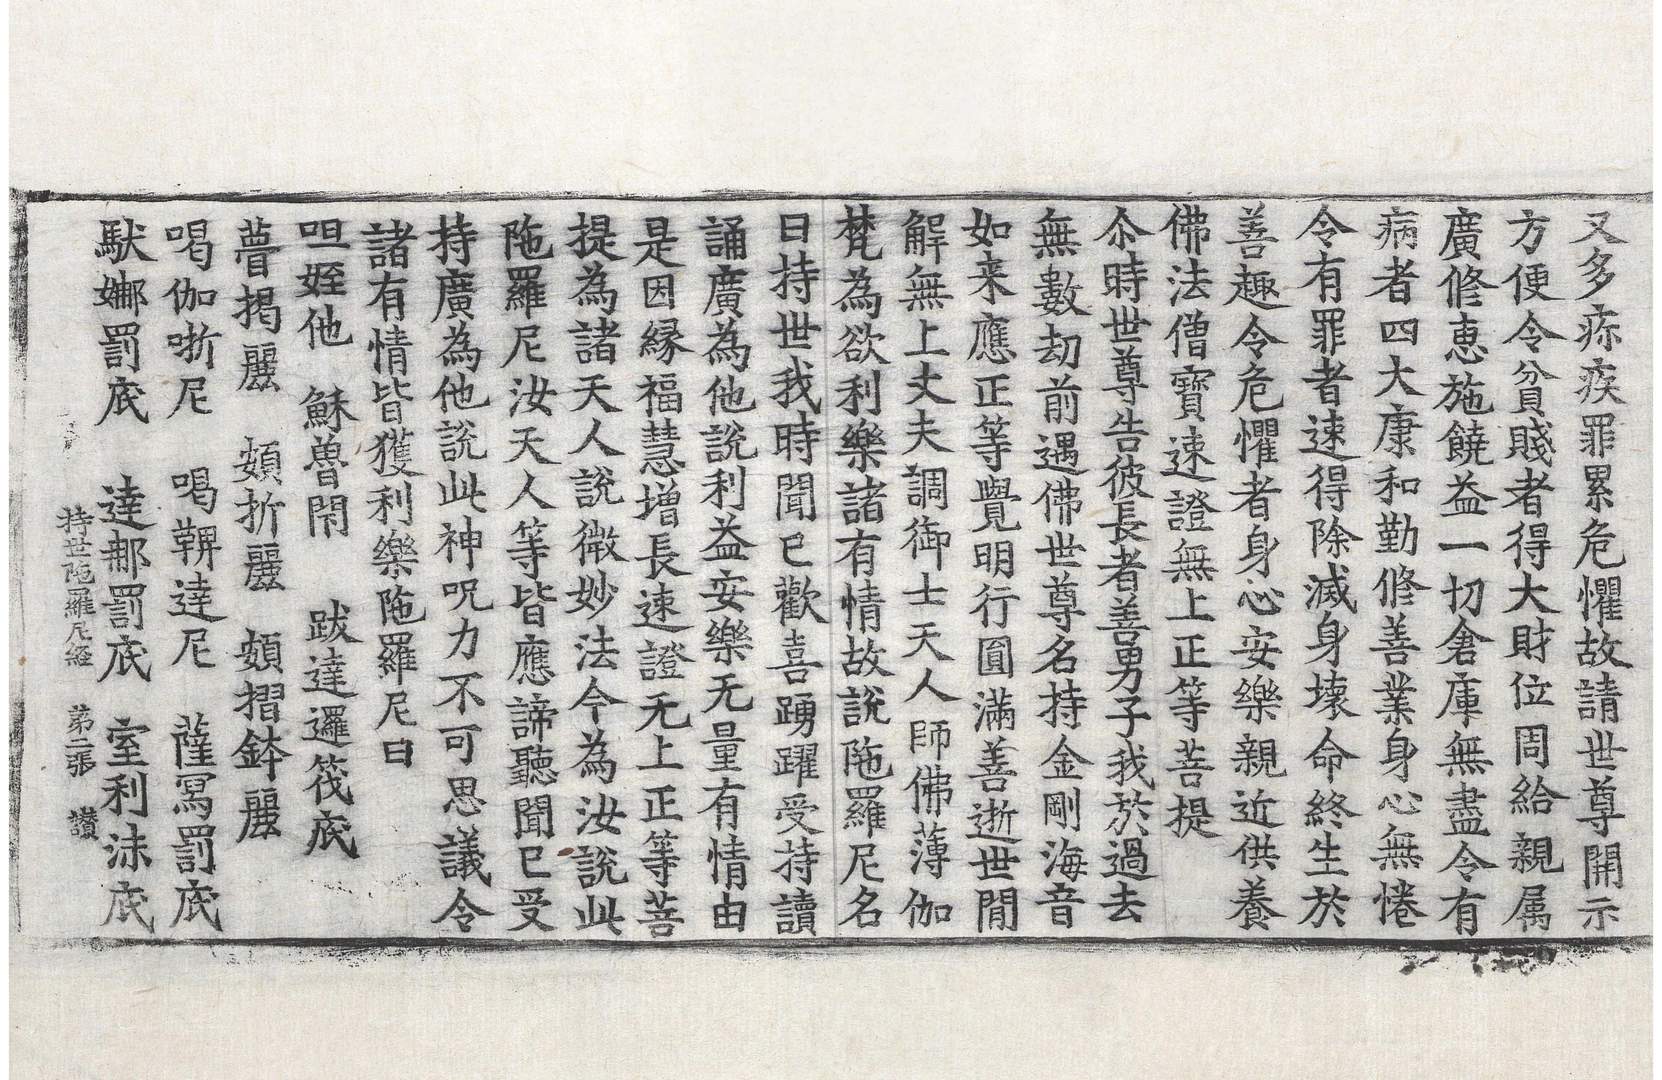 又多疢疾罪累危懼故請世尊開示
方便令貧賤者得大財位周給親属
廣修惠施饒益一切倉庫無盡令有
病者四大康和勤修善業身心無惓
令有罪者速得除滅身壞命終生於
善趣令危懼者身心安樂親近供養
佛法僧寶速證無上正等菩提
尒時世尊告彼長者善男子我於過去
無數劫前遇佛世尊名持金剛海音
如来應正等覺明行圓滿善逝世閒
解無上丈夫調御士天人師佛薄伽
梵為欲利樂諸有情故說陁羅尼名
曰持世我時聞已歡喜踴躍受持讀
誦廣為他說利益安樂无量有情由
是因緣福慧增長速證无上正等菩
提為諸天人說微妙法今為汝說此
陁羅尼汝天人等皆應諦聽聞已受
持廣為他說此神呪力不可思議令
諸有情皆獲利樂陁羅尼曰
呾姪他 穌魯閇 跋達邏筏底
瞢揭麗 頞折麗 頞摺鉢麗
喝伽哳尼 喝鞞達尼 薩寫罰底
馱娜罰底 達那罰底 室利沬底
持世陁羅尼経 第二張 讃